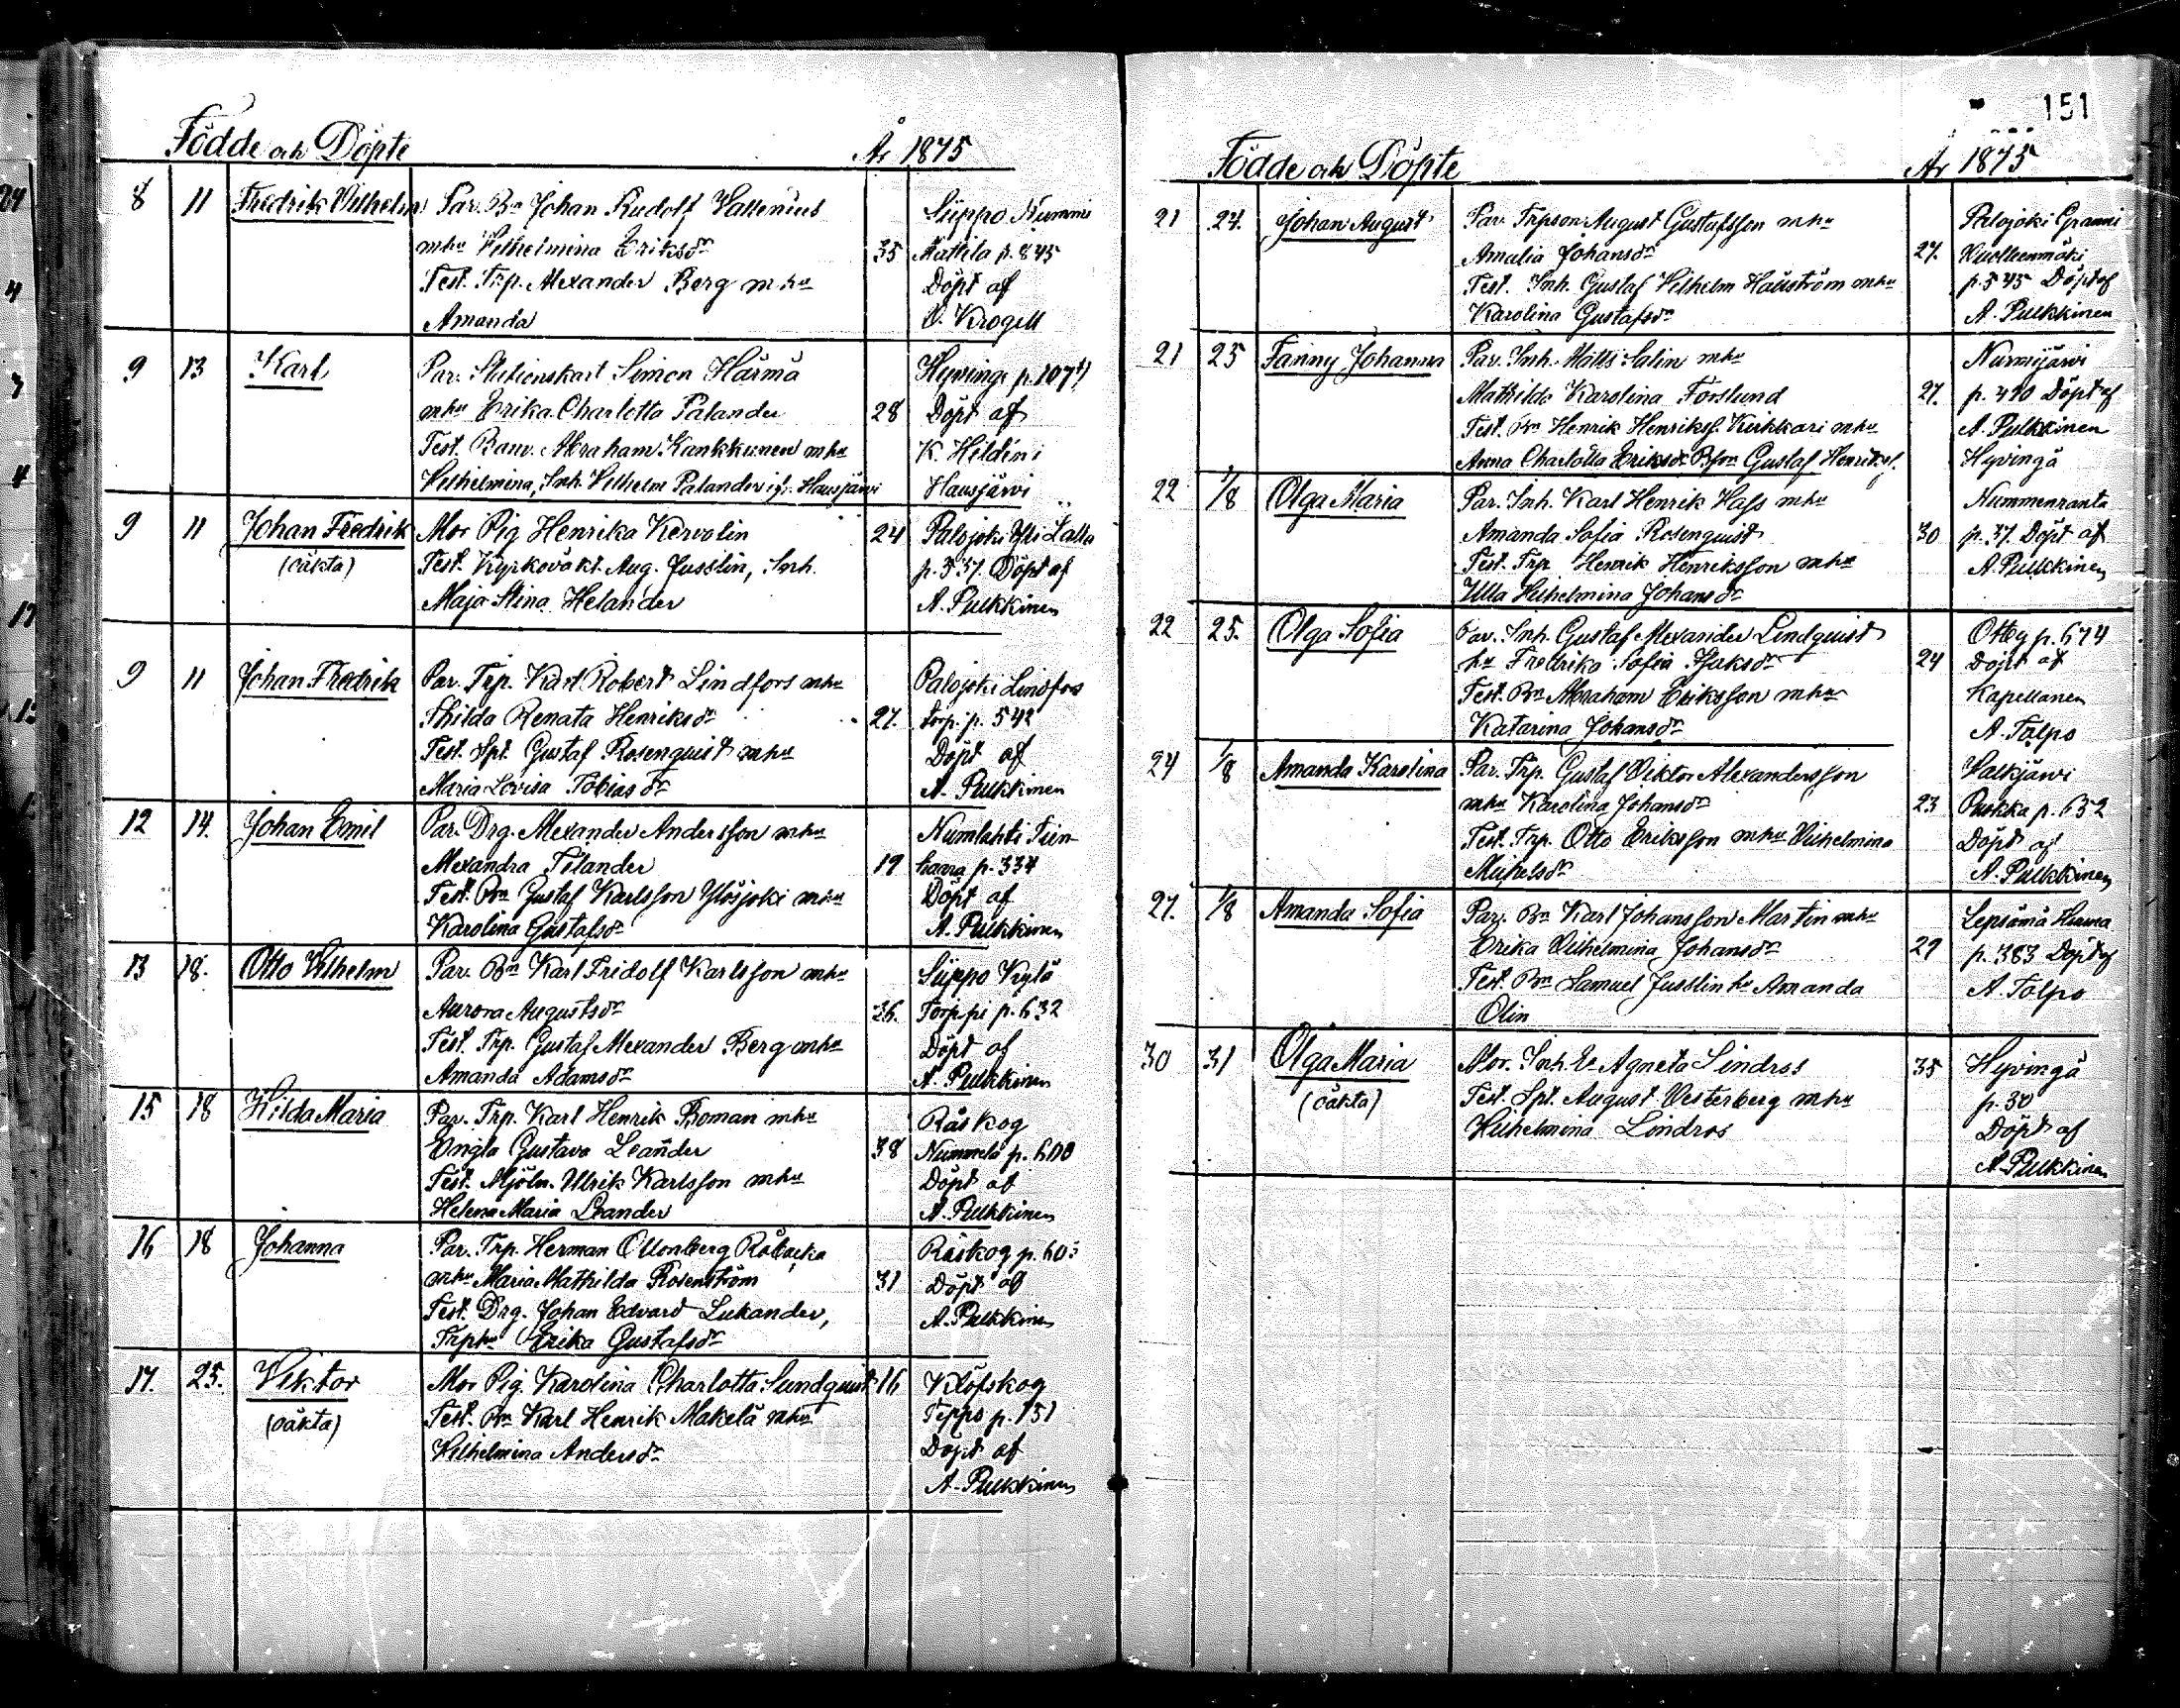 Födde och Döpte År 1875
8 11 Fredrik Vilhelm Par. Bn Johan Rudolf Vallenius Siippo Nummi
mhu Vilhelmina Eriksdr 35 Mattila p. 845
Test. Trp. Alexander Berg mhu Döpt af
Amanda O. Krogell
9 13 Karl Par. Stationskarl Simon Härmä Hyvinge p. 107
mhu Erika Charlotta Palander 28 Döpt af
Test. Banv. Abraham Kankkunen mhu K. Heldin i
Vilhelmina, Inh. Vilhelm Palander ifr. Hausjärvi Hausjärvi
9 11 Johan Fredrik Mor Pig. Henrika Kervolin 24 Palojoki Yli Lalla
(oäkta) Test. Kyrkovakt. Aug. Jusslin, Inh. p. 537. Döpt af
Maja Stina Helander A. Pulkkinen
9 11 Johan Fredrik Par. Trp. Karl Robert Lindfors mhu Palojoki Lindfors
Hilda Renata Henriksdr 27. torp. p. 542
Test. Spt. Gustaf Rosenquist mhu Döpt af
Maria Lovisa Tobiasdr A. Pulkkinen
12 14. Johan Emil Par. Drg. Alexander Andersson mhu Numlahti Tien-
Alexandra Tilander 19 haara p. 334
Test. Bn Gustaf Karlsson Ylösjoki mhu Döpt af
Karolina Gustafsdr A. Pulkkinen
13 18. Otto Vilhelm Par. Bn Karl Fridolf Karlsson mhu Siippo Kylä
Aurora Augustsdr 26. Torppi p. 632
Test. Trp. Gustaf Alexander Berg mhu Döpt af
Amanda Adamsdr A. Pulkkinen
15 18 Hilda Maria Par. Trp. Karl Henrik Boman mhu Råskog
Engla Gustava Leander 38 Nummela p. 600
Test. Mjöln. Ulrik Karlsson mhu Döpt af
Helena Maria Leander A. Pulkkinen
16 18 Johanna Par. Trp. Herman Ollonberg Råbacka Råskog p. 60
mhu Maria Mathilda Rosenström 31 Döpt af
Test. Drg. Johan Edvard Lukander, A. Pulkkinen
Trphu Erika Gustafsdr
17. 25. Viktor Mor Pig. Karolina Charlotta Sundquist 16 Klöfskog
(oäkta) Test. Bn Karl Henrik Makelä mhu Teppo p. 151
Vilhelmina Andersdr Döpt af
A. Pulkkinen
151
Födde och Döpte År 1875
21 24. Johan August Par. Trpson August Gustafsson mhu Palojoki Granni
Amalia Johansdr 27. Kuolleenmäki
Test. Inh. Gustaf Vilhelm Hallström mhu p. 545 Döpt af
Karolina Gustafsdr A. Pulkkinen
21 25 Fanny Johanna Par. Inh. Matts Salin mhu Nurmijärvi
Mathilda Karolina Forslund 27. p. 490 Döpt af
Test. Bn Henrik Henrikss. Kirkkari mhu A. Pulkkinen
Anna Charlotta Eriksdr Bson Gustaf Henrikss. Hyvingä
22 1/8 Olga Maria Par. Inh. Karl Henrik Hass mhu Nummenranta
Amanda Sofia Rosenquist 30 p. 37. Döpt af
Test. Trp. Henrik Henriksson mhu A. Pulkkinen
Ulla Vilhelmina Johansdr
22 25. Olga Sofia Par. Inh. Gustaf Alexander Lindquist Ottby p. 674
hu Fredrika Sofia Isaksdr 24 Döpt af
Test. Bn Abraham Eriksson mhu Kapellanen
Katarina Johansdr A. Tolpo
24 1/8 Amanda Karolina Par. Trp. Gustaf Viktor Alexandersson Valkjärvi
mhu Karolina Johansdr 23 Puskka p. 652
Test. Trp. Otto Eriksson mhu Vilhelmina Döpt af
Mickelsdr A. Pulkkinen
27. 1/8 Amanda Sofia Par. Bn Karl Johansson Martin mhu Lepsämä
Erika Vilhelmina Johansdr 29 p. 383 Döpt af
Test. Bn Samuel Jusslin hu Amanda A. Tolpo
Olin
30 31 Olga Maria Mor. Inh. E. Agneta Lindros 35 Hyvingä
(oäkta) Test. Spt. August Vesterberg mhu p. 30
Vilhelmina Lindros Döpt af
A. Pulkkinen